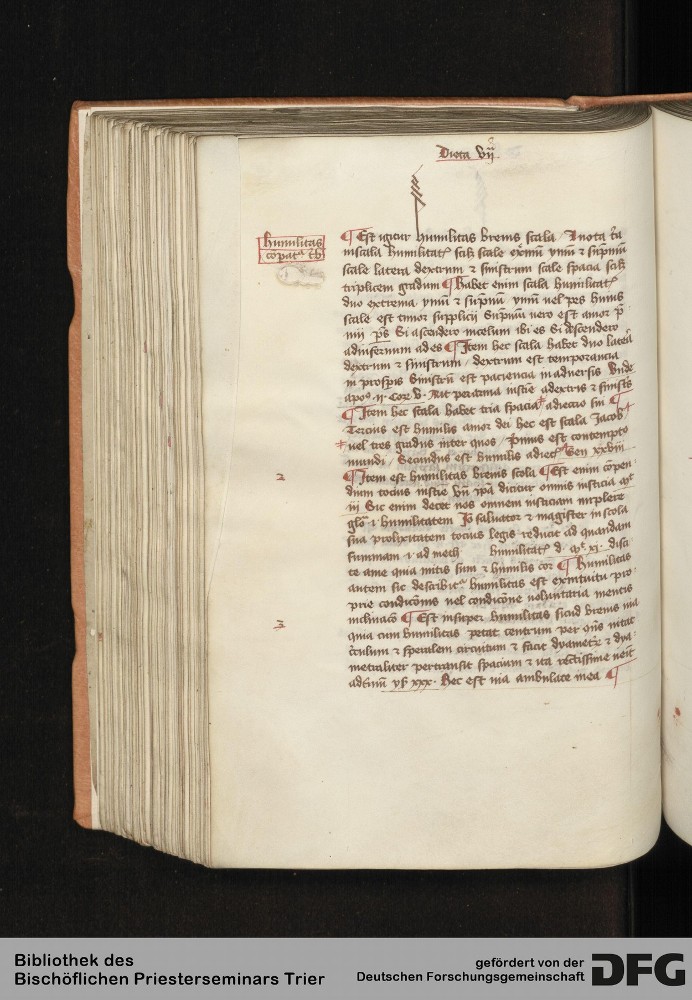 Dieta vij
humilitas
cōpatᵃ
¶ Est igitur humilitas breuis scala / Et nota
in scala humilitatꝭ sunt scale extremū ymū & supremū
scale latera dextrum & sinistrum scale spacia
triplicem gradum ¶ habet enim scala humilitatꝭ
duo extrema ymū & supmū ymū vel pes huius
scale est timor supplicij Supmū vero est amor
Si ascendero in celum ibi es Si descendero
ad infernum ades ¶ Item hec scala habet duo latera
dextrum & sinistrum / dextrum est temperancia
in prospis Sinistrū est paciencia in aduersis Vnde
apoˢ ij Cor arma iusticie a dextris & sinistris
¶ Item hec scala habet tria spacia abiectio sui ¶
Tercius est humilis amor dei hec est scala Jacob
vel tres gradus inter quos / primus est contempto
mundi / Secundus est humilis Gen xxviij
2
¶ Item est humilitas breuis scola ¶ Est enim cōpen
dium tocius iusticie Vn ipā dicitur omnis iusticia mt
iij Sic enim decet nos omnem iusticiam implere
gloª i humilitatem Jo saluator & magister in scola
sua prolixitatem tocius legis reducit ad quandam
summam i ad humilitatꝭ d mt xi disci
te a me quia mitis sum & humilis cor ¶ Humilitas
autem sic describitᵃ humilitas est ex intuitu pro
prie condicōnis vel condicōne voluntaria mentis
inclinacō ¶ Est insuper humilitas sicud breuis uia
3
quia cum humilitas petat centrum per qūs uitat
circulum & speralem circuitum & facit dyametrū & dya
metraliter pertransit spacium & ita rectissime uenit
ad deum ys xxx. Hec est uia ambulate in ea ¶
Bibliothek des
Bischöflichen Priesterseminars Trier
gefördert von der
Deutschen Forschungsgemeinschaft
DFG